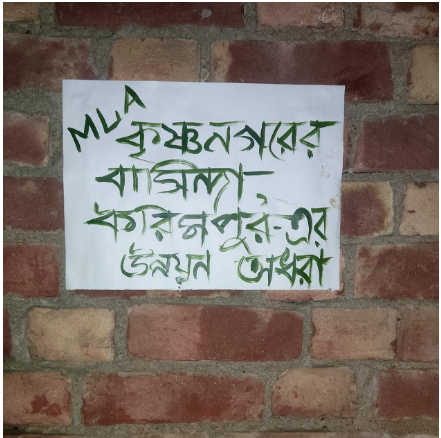 MLA কৃষ্ণনগরের
বাসিন্দা,
করিমপুর-এর
উন্নয়ন অধরা